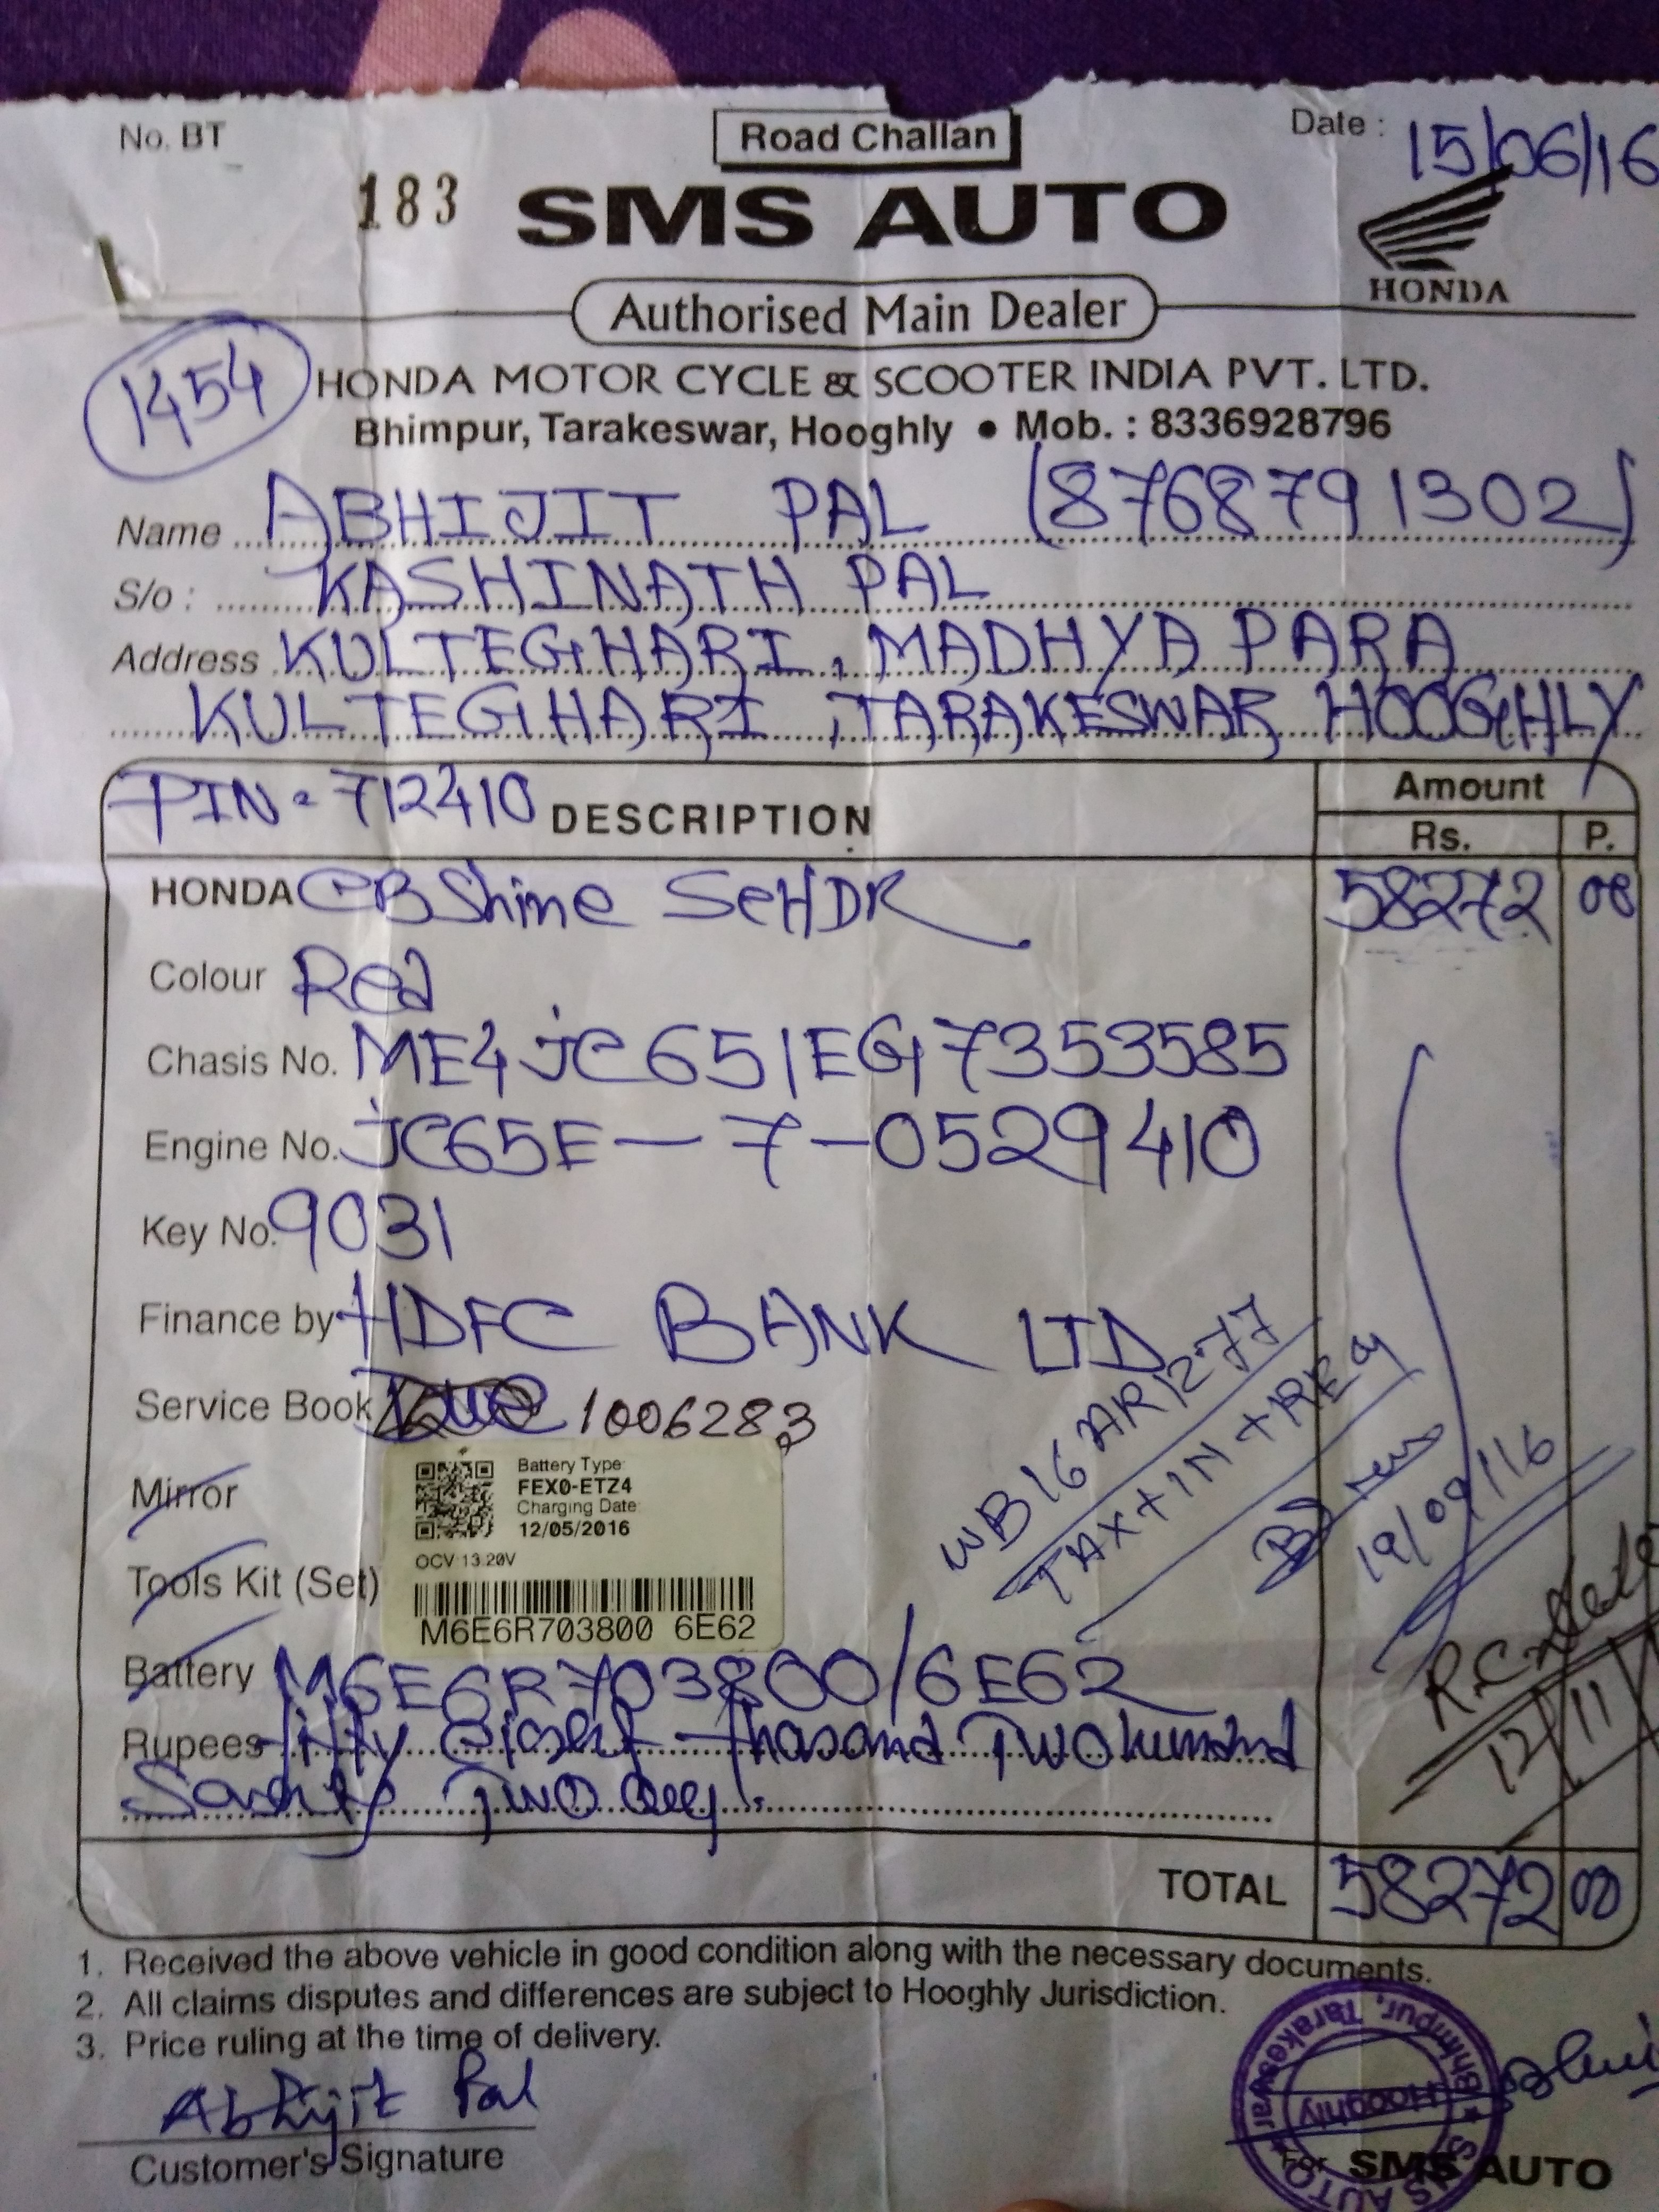 No. BT
Road Challan
Date : 15/06/16
183
SMS AUTO
HONDA
Authorised Main Dealer
1454
HONDA MOTOR CYCLE & SCOOTER INDIA PVT. LTD.
Bhimpur, Tarakeswar, Hooghly • Mob. : 8336928796
Name ABHIJIT PAL (8768791302)
S/o : KASHINATH PAL
Address KULTEGHARI, MADHYA PARA
KULTEGHARI, TARAKESWAR HOOGHLY
PIN - 712410 DESCRIPTION
Amount
Rs. P.
HONDA CB Shine 58272 00
Colour Red
Chasis No. ME4JC651EG7353585
Engine No. JC65E-7-0529410
Key No. 9031
Finance by HDFC BANK LTD
Service Book 1006283
WB16AR1277
TAX+IN+REG
19/09/16
Mirror
Battery Type:
FEX0-ETZ4
Charging Date:
12/05/2016
OCV 13.20V
Tools Kit (Set)
M6E6R703800 6E62
Battery M6E6R703800/6E62
12/11
Rupees fifty Eight Thosand Two hundrd
Two only.
TOTAL 58272 00
1. Received the above vehicle in good condition along with the necessary documents.
2. All claims disputes and differences are subject to Hooghly Jurisdiction.
3. Price ruling at the time of delivery.
Abhijit Pal
Customer's Signature
SMS AUTO
Bhimpur, Tarakeswar
Hooghly
For SMS AUTO